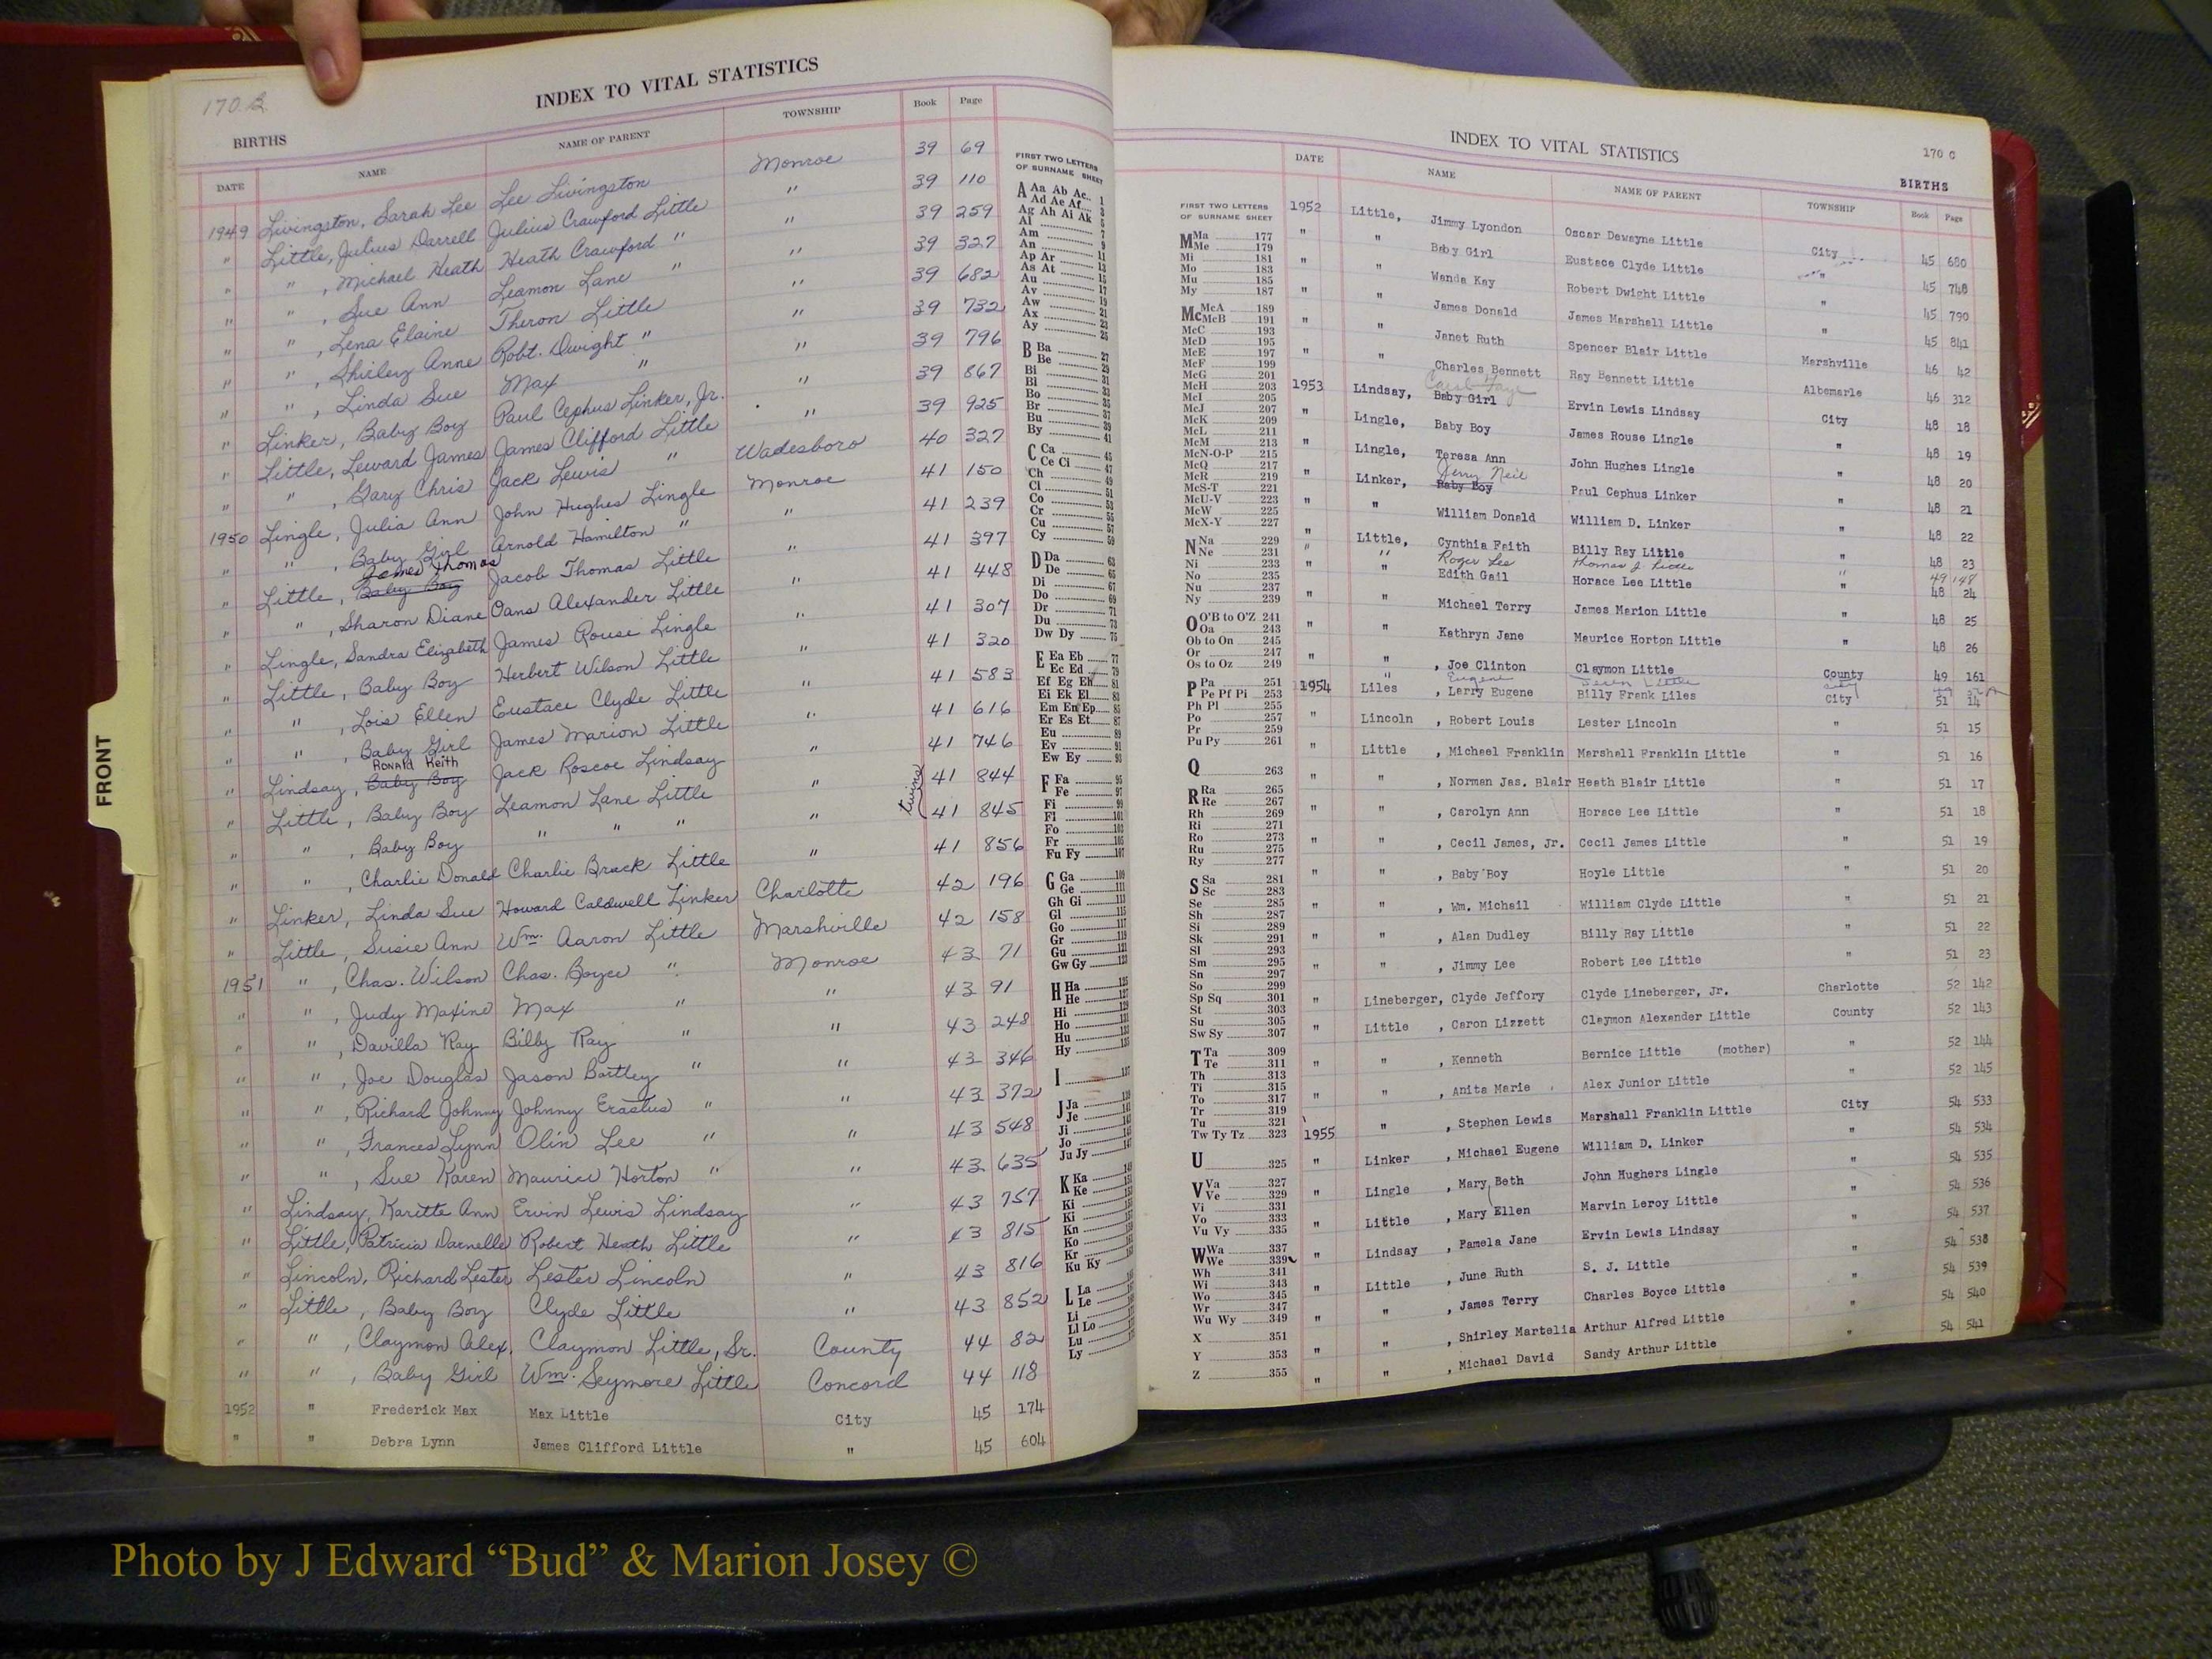 170 B
INDEX TO VITAL STATISTICS
BIRTHS
DATE NAME NAME OF PARENT TOWNSHIP Book Page
1949 Livingston, Sarah Lee Lee Livingston Monroe 39 69
" Little, Julius Darrell Julius Crawford Little " 39 110
" " , Michael Heath Heath Crawford " " 39 259
" " , Sue Ann Leamon Lane " " 39 327
" " , Lena Elaine Theron Little " 39 682
" " , Shirley Anne Robt. Dwight " " 39 732
" " , Linda Sue Max " " 39 796
" Linker, Baby Boy Paul Cephus Linker, Jr. " 39 867
" Little, Leward James James Clifford Little " 39 925
" " , Gary Chris Jack Lewis " Wadesboro 40 327
1950 Lingle, Julia Ann John Hughes Lingle Monroe 41 150
" " , Baby Girl Arnold Hamilton " " 41 239
James Thomas
" Little, Baby Boy Jacob Thomas Little " 41 397
" " , Sharon Diane Oans Alexander Little " 41 448
" Lingle, Sandra Elizabeth James Rouse Lingle " 41 307
" Little, Baby Boy Herbert Wilson Little " 41 320
" " , Lois Ellen Eustace Clyde Little " 41 583
" " , Baby Girl James Marion Little " 41 616
Ronald Keith
" Lindsay, Baby Boy Jack Roscoe Lindsay " 41 746
" Little, Baby Boy Leamon Lane Little " twins 41 844
" " , Baby Boy " " " " 41 845
" " , Charlie Donald Charlie Brack Little " 41 856
" Linker, Linda Sue Howard Caldwell Linker Charlotte 42 196
" Little, Susie Ann Wm. Aaron Little Marshville 42 158
1951 " , Chas. Wilson Chas. Boyce " Monroe 43 71
" " , Judy Maxine Max " " 43 91
" " , Davilla Ray Billy Ray " " 43 248
" " , Joe Douglas Jason Bartley " " 43 346
" " , Richard Johnny Johnny Erastus " " 43 372
" " , Frances Lynn Olin Lee " " 43 548
" " , Sue Karen Maurice Horton " " 43 635
" Lindsay, Karette Ann Ervin Lewis Lindsay " 43 757
" Little, Patricia Darnelle Robert Heath Little " 43 815
" Lincoln, Richard Lester Lester Lincoln " 43 816
" Little, Baby Boy Clyde Little " 43 852
" " , Claymon Alex. Claymon Little, Sr. County 44 82
" " , Baby Girl Wm. Seymore Little Concord 44 118
1952 " Frederick Max Max Little City 45 174
" " Debra Lynn James Clifford Little " 45 604
FRONT
FIRST TWO LETTERS
OF SURNAME SHEET
A Aa Ab Ac.. 1
Ad Ae Af.... 3
Ag Ah Ai Ak 5
Al 7
Am 9
An 11
Ap Ar 13
As At 15
Au 17
Av 19
Aw 21
Ax 23
Ay 25
B Ba 27
Be 29
Bi 31
Bl 33
Bo 35
Br 37
Bu 39
By 41
C Ca 45
Ce Ci 47
Ch 49
Cl 51
Co 53
Cr 55
Cu 57
Cy 59
D Da 63
De 65
Di 67
Do 69
Dr 71
Du 73
Dw Dy 75
E Ea Eb 77
Ec Ed 79
Ef Eg Eh 81
Ei Ek El 83
Em En Ep 85
Er Es Et 87
Eu 89
Ev 91
Ew Ey 93
F Fa 95
Fe 97
Fi 99
Fl 101
Fo 103
Fr 105
Fu Fy 107
G Ga 109
Ge 111
Gh Gi 113
Gl 115
Go 117
Gr 119
Gu 121
Gw Gy 123
H Ha 125
He 127
Hi
Ho
Hu
Hy 135
I 137
J Ja
Je
Ji
Jo
Ju Jy
K Ka
Ke
Ki
Kl
Kn
Ko
Kr
Ku Ky
L La
Le
Li
Ll Lo
Lu
Ly
INDEX TO VITAL STATISTICS
170 C
BIRTHS
DATE NAME NAME OF PARENT TOWNSHIP Book Page
FIRST TWO LETTERS
OF SURNAME SHEET
M Ma 177
Me 179
Mi 181
Mo 183
Mu 185
My 187
Mc McA 189
McB 191
McC 193
McD 195
McE 197
McF 199
McG 201
McH 203
McI 205
McJ 207
McK 209
McL 211
McM 213
McN-O-P 215
McQ 217
McR 219
McS-T 221
McU-V 223
McW 225
McX-Y 227
N Na 229
Ne 231
Ni 233
No 235
Nu 237
Ny 239
O O'B to O'Z 241
Oa 243
Ob to On 245
Or 247
Os to Oz 249
P Pa 251
Pe Pf Pi 253
Ph Pl 255
Po 257
Pr 259
Pu Py 261
Q 263
R Ra 265
Re 267
Rh 269
Ri 271
Ro 273
Ru 275
Ry 277
S Sa 281
Sc 283
Se 285
Sh 287
Si 289
Sk 291
Sl 293
Sm 295
Sn 297
So 299
Sp Sq 301
St 303
Su 305
Sw Sy 307
T Ta 309
Te 311
Th 313
Ti 315
To 317
Tr 319
Tu 321
Tw Ty Tz 323
U 325
V Va 327
Ve 329
Vi 331
Vo 333
Vu Vy 335
W Wa 337
We 339
Wh 341
Wi 343
Wo 345
Wr 347
Wu Wy 349
X 351
Y 353
Z 355
1952 Little, Jimmy Lyondon Oscar Dewayne Little City 45 680
" " Baby Girl Eustace Clyde Little " 45 748
" " Wanda Kay Robert Dwight Little " 45 790
" " James Donald James Marshall Little " 45 841
" " Janet Ruth Spencer Blair Little Marshville 46 42
" " Charles Bennett Ray Bennett Little Albemarle 46 312
Carol Faye
1953 Lindsay, Baby Girl Ervin Lewis Lindsay City 48 18
" Lingle, Baby Boy James Rouse Lingle " 48 19
" Lingle, Teresa Ann John Hughes Lingle " 48 20
Jerry Neil
" Linker, Baby Boy Paul Cephus Linker " 48 21
" " William Donald William D. Linker " 48 22
" Little, Cynthia Faith Billy Ray Little " 48 23
" " Roger Lee Thomas J. Little " 49 148
" " Edith Gail Horace Lee Little " 48 24
" " Michael Terry James Marion Little " 48 25
" " Kathryn Jane Maurice Horton Little " 48 26
" " , Joe Clinton Claymon Little County 49 161
" Eugene City
1954 Liles , Larry Eugene Billy Frank Liles City 51 14
" Lincoln , Robert Louis Lester Lincoln " 51 15
" Little , Michael Franklin Marshall Franklin Little " 51 16
" " , Norman Jas. Blair Heath Blair Little " 51 17
" " , Carolyn Ann Horace Lee Little " 51 18
" " , Cecil James, Jr. Cecil James Little " 51 19
" " , Baby Boy Hoyle Little " 51 20
" " , Wm. Michail William Clyde Little " 51 21
" " , Alan Dudley Billy Ray Little " 51 22
" " , Jimmy Lee Robert Lee Little " 51 23
" Lineberger, Clyde Jeffory Clyde Lineberger, Jr. Charlotte 52 142
" Little , Caron Lizzett Claymon Alexander Little County 52 143
" " , Kenneth Bernice Little (mother) " 52 144
" " , Anita Marie Alex Junior Little " 52 145
1955 " , Stephen Lewis Marshall Franklin Little City 54 533
" Linker , Michael Eugene William D. Linker " 54 534
" Lingle , Mary Beth John Hughers Lingle " 54 535
" Little , Mary Ellen Marvin Leroy Little " 54 536
" Lindsay , Pamela Jane Ervin Lewis Lindsay " 54 537
" Little , June Ruth S. J. Little " 54 538
" " , James Terry Charles Boyce Little " 54 539
" " , Shirley Martelia Arthur Alfred Little " 54 540
" " , Michael David Sandy Arthur Little " 54 541
Photo by J Edward “Bud” & Marion Josey ©